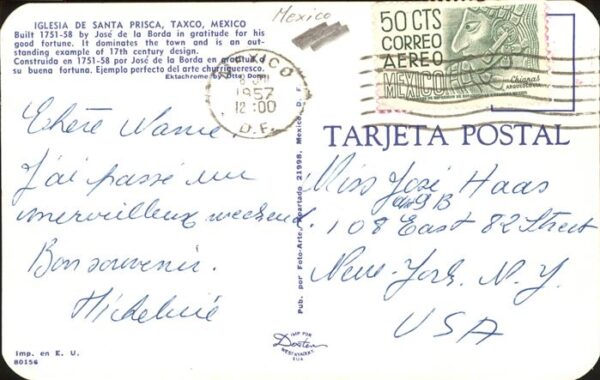 IGLESIA DE SANTA PRISCA, TAXCO, MEXICO
Built 1751-58 by José de la Borda in gratitude for his
good fortune. It dominates the town and is an out-
standing example of 17th century design.
Construida en 1751-58 por José de la Borda en gratitud d
su buena fortuna. Ejemplo perfecto del arte churrigueresco.
Ektachrome by Otto Done
Mexico
MEXICO
1957
12:00
D. F.
50 CTS
CORREO
AEREO
MEXICO
Chiapas
ARQUEOLOGIA
TARJETA POSTAL
Chère Nanie,
J'ai passé un
merveilleux weekend.
Bon souvenir.
Micheline
Pub. por Foto-Arte, Apartado 21998, Mexico, D. F.
Miss José Haas
apt 9 B
108 East 82 Street
New-York. N. Y.
USA
IMP POR
Dexter
WEST NYACK N.Y.
EUA
Imp. en E. U.
80156